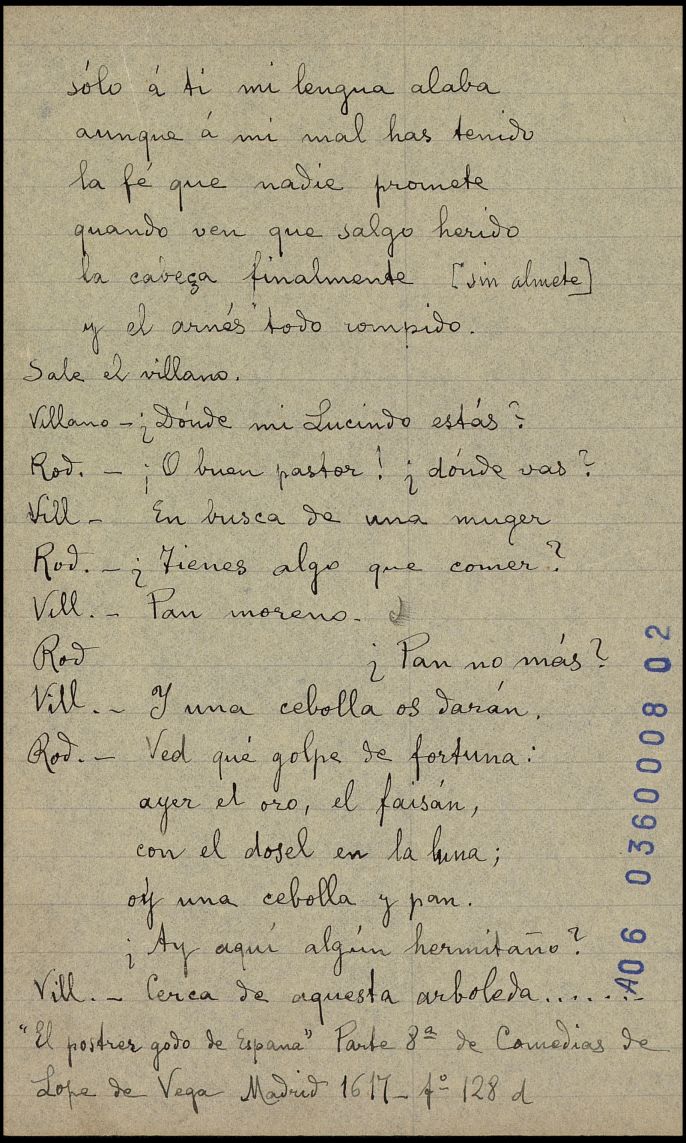 sólo á ti mi lengua alaba
aunque á mi mal has tenido
la fé que nadie promete
quando ven que salgo herido
la cabeça finalmente [sin almete]
y el arnés todo rompido.
Sale el villano.
Villano - ¿Dónde mi Lucindo estás?
Rod. - ¡O buen pastor! ¿dónde vas?
Vill - En busca de una muger
Rod. - ¿Tienes algo que comer?
Vill. - Pan moreno.
Rod ¿Pan no más?
Vill. - Y una cebolla os darán.
Rod. - Ved qué golpe de fortuna:
ayer el oro, el faisán,
con el dosel en la luna;
oy una cebolla y pan.
¿Ay aquí algún hermitaño?
Vill. - Cerca de aquesta arboleda.......
"El postrer godo de España" Parte 8ª de Comedias de
Lope de Vega Madrid 1617 - fº 128 d
A06 0360008 02